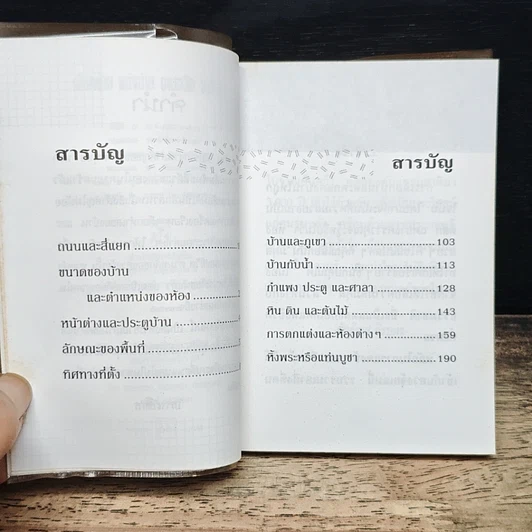 สารบัญ
ถนนและสี่แยก
ขนาดของบ้าน
และตำแหน่งของห้อง
หน้าต่างและประตูบ้าน
ลักษณะของพื้นที่
ทิศทางที่ตั้ง
สารบัญ
บ้านและภูเขา 103
บ้านกับน้ำ 113
กำแพง ประตู และศาลา 128
หิน ดิน และต้นไม้ 143
การตกแต่งและห้องต่างๆ 159
หิ้งพระหรือแท่นบูชา 190